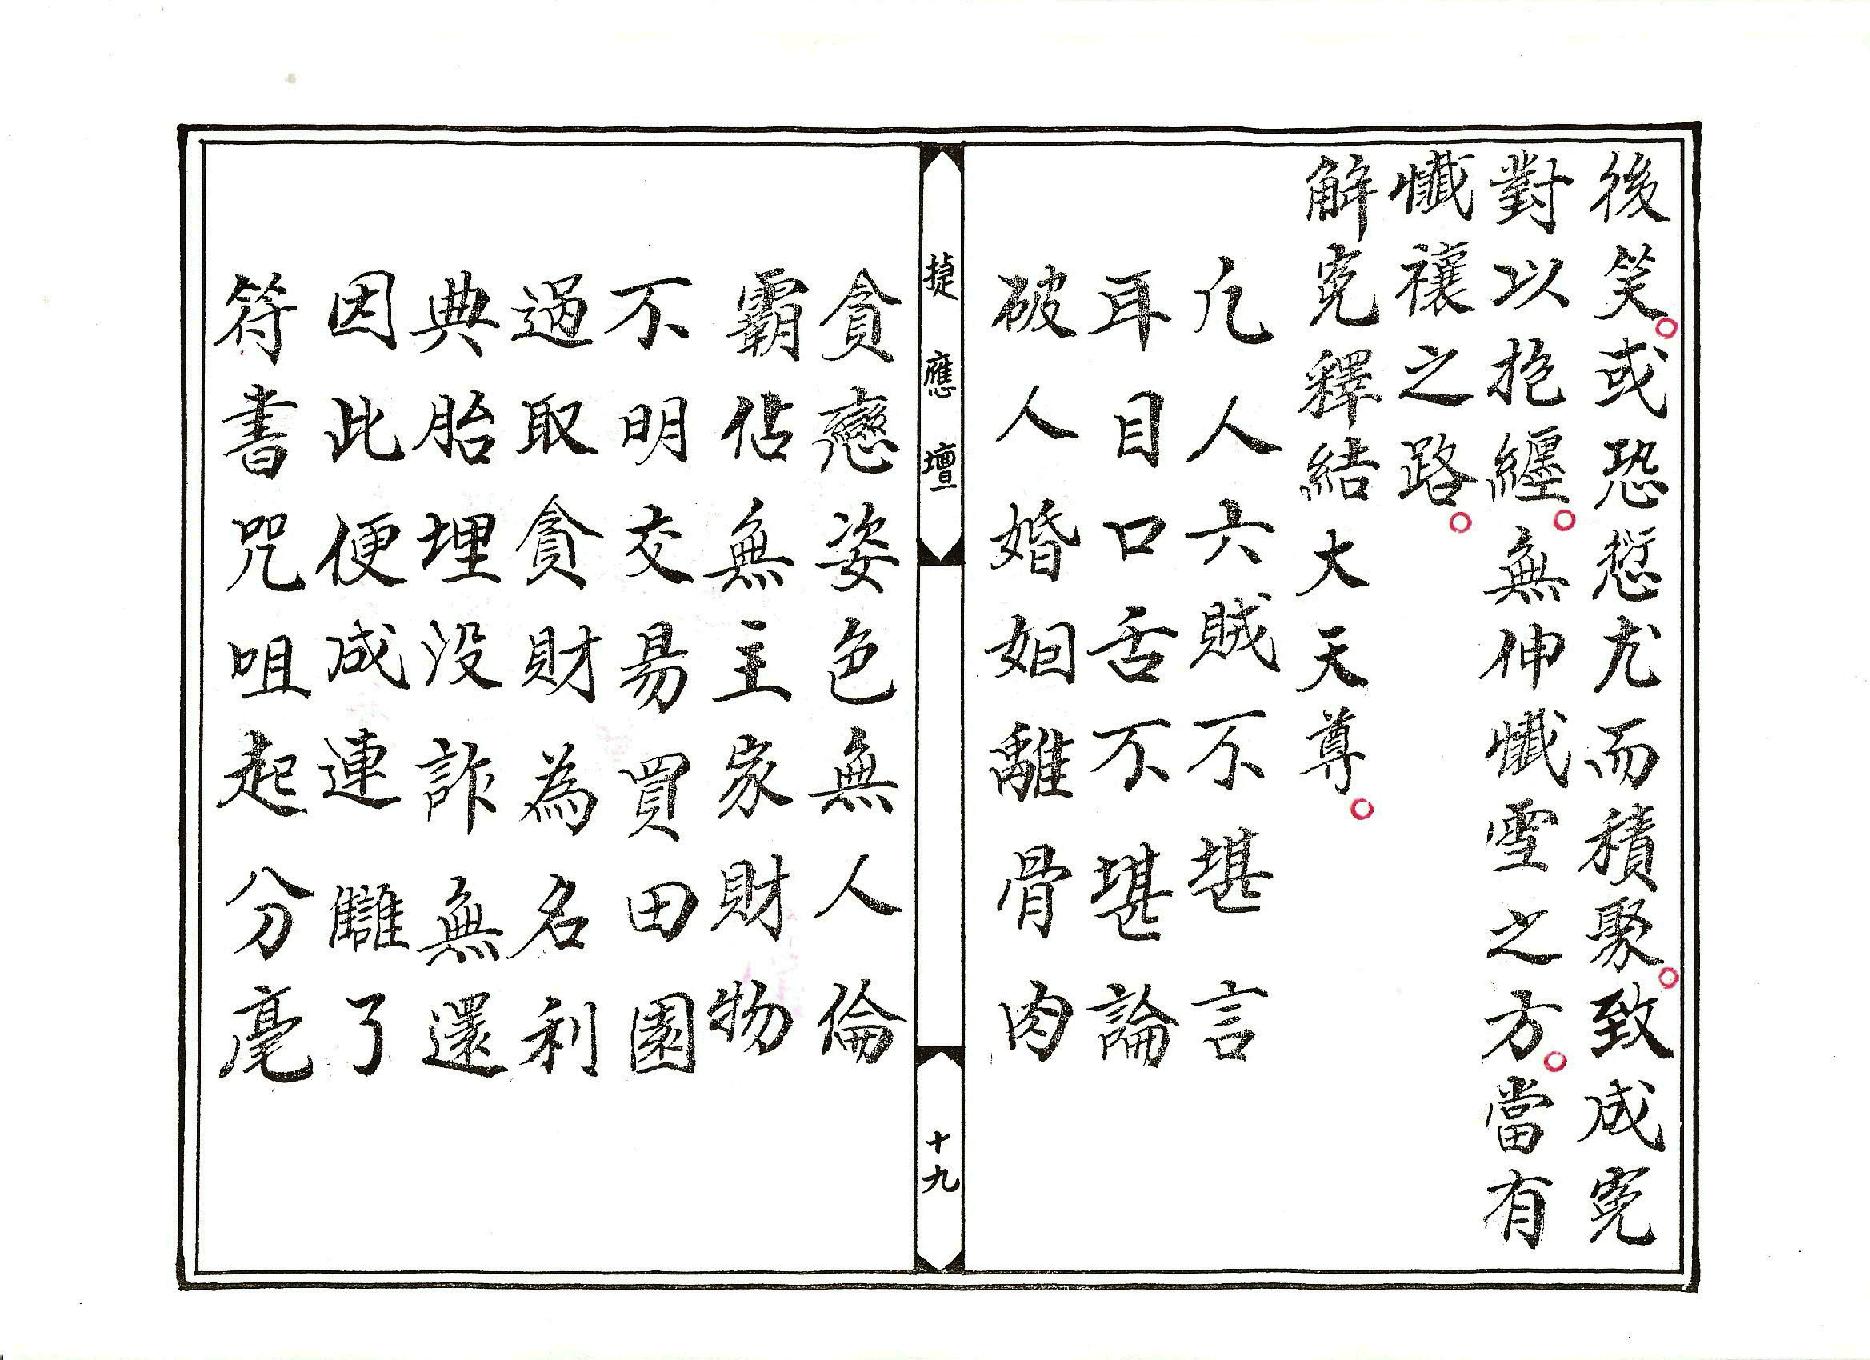 後笑。或恐愆尤而積聚。致成寃
對以抱纏。無伸懺雪之方。當有
懺禳之路。
解寃釋結大天尊。
凢人六賊不堪言
耳目口舌不堪論
破人婚姻離骨肉
捷應壇
十九
貪戀姿色無人倫
霸佔無主家財物
不明交易買田園
過取貪財為名利
典胎埋没詐無還
因此便成連讎了
符書咒咀起分毫